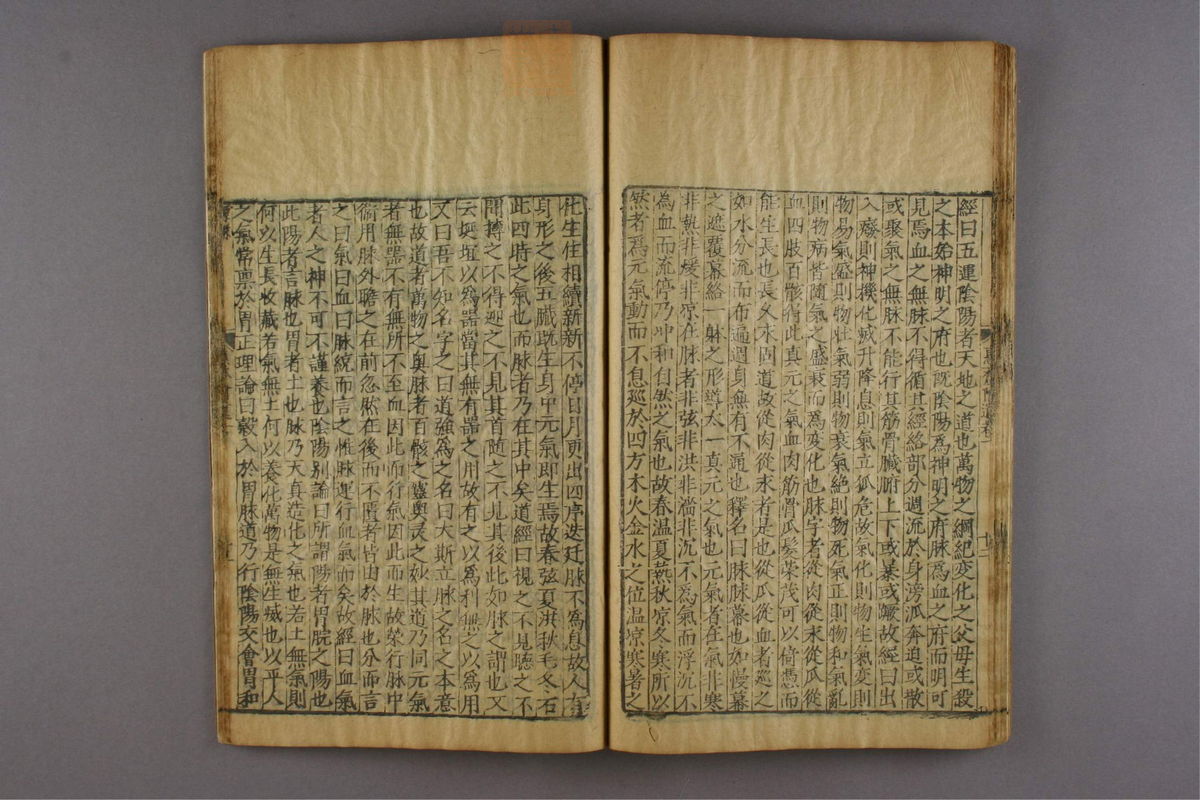 經曰五運陰陽者天地之道也萬物之綱紀變化之父母生殺
之本始神明之府也旣陰陽為神明之府脉為血之府而明可
見焉血之無脉不得循其經絡部分週流於身滂瓜奔迫或散
或聚氣之無脉不能行其筋骨臓腑上下或暴或蹶故經曰出
入癈則神機化滅升降息則氣立孤危故氣化則物生氣變則
物易氣盛則物壯氣弱則物衰氣絶則物死氣正則物和氣亂
則物病皆隨氣之盛衰而為変化也脉字者從肉從𠂢從瓜從
血四肢百骸得此真元之氣血肉筋骨瓜髪榮茂可以倚憑而
能生長也長久未固道故從肉從永者是也從瓜從血者巡之
如水分流而布遍週身無有不通也釋名曰脉脉幕也如幔幕
之遮覆幕絡一躰之形導太一真元之氣也元氣者在氣非寒
非熱非煖非凉在脉者非弦非洪非濇非沉不為氣而浮沉不
為血而流停乃冲和自然之氣也故春温夏𤍠秋凉冬寒所以
然者為元氣動而不息巡於四方木火金水之位温凉寒暑之
化生生相續新新不停日月更出四序迭廷脉不為息故人有
身形之後五臓旣生身中元氣即生焉故春弦夏洪秋毛冬石
此四時之氣也而脉者乃在其中矣道經曰視之不見聽之不
聞搏之不得迎之不見其首隨之不見其後此如脉之謂也又
云埏埴以為器當其無有器之用故有之以為利無之以為用
又曰吾不知名字之曰道強為之名曰大斯立脉之名之本意
也故道者萬物之奥脉者百骸之靈奥灵之妙其道乃同元氣
者無噐不有無所不至血因此而行氣因此而生故榮行脉中
衛用脉外瞻之在前忽然在後而不匱者皆由於脉也分而言
之曰氣曰血曰脉緫而言之惟脉運行血氣而矣故經曰血氣
者人之神不可不謹養也陰陽别論曰所謂陽者胃脘之陽也
此陽者言脉也胃者土也脉乃天真造化之氣也若土無氣則
何以生長收藏若氣無土何以養化萬物是無生滅也以平人
之氣常禀於胃正理論曰榖入於胃脉道乃行陰陽交會胃和